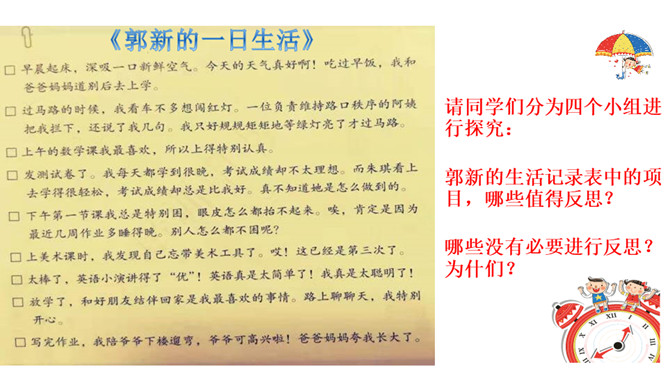 《郭新的一日生活》
早晨起床，深吸一口新鲜空气。今天的天气真好啊！吃过早饭，我和
爸爸妈妈道别后去上学。
过马路的时候，我看车不多想闯红灯。一位负责维持路口秩序的阿姨
把我拦下，还说了我几句。我只好规规矩矩地等绿灯亮了才过马路。
上午的数学课我最喜欢，所以上得特别认真。
发测试卷了。我每天都学到很晚，考试成绩却不太理想。而朱琪看上
去学得很轻松，考试成绩却总是比我好。真不知道她是怎么做到的。
下午第一节课我总是特别困，眼皮怎么都抬不起来。唉，肯定是因为
最近几周作业多睡得晚。别人怎么都不困呢？
上美术课时，我发现自己忘带美术工具了。哎！这已经是第三次了。
太棒了，英语小演讲得了“优”！英语真是太简单了！我真是太聪明了！
放学了，和好朋友结伴回家是我最喜欢的事情。路上聊聊天，我特别
开心。
写完作业，我陪爷爷下楼遛弯，爷爷可高兴啦！爸爸妈妈夸我长大了。
请同学们分为四个小组进
行探究：
郭新的生活记录表中的项
目，哪些值得反思？
哪些没有必要进行反思？
为什们？